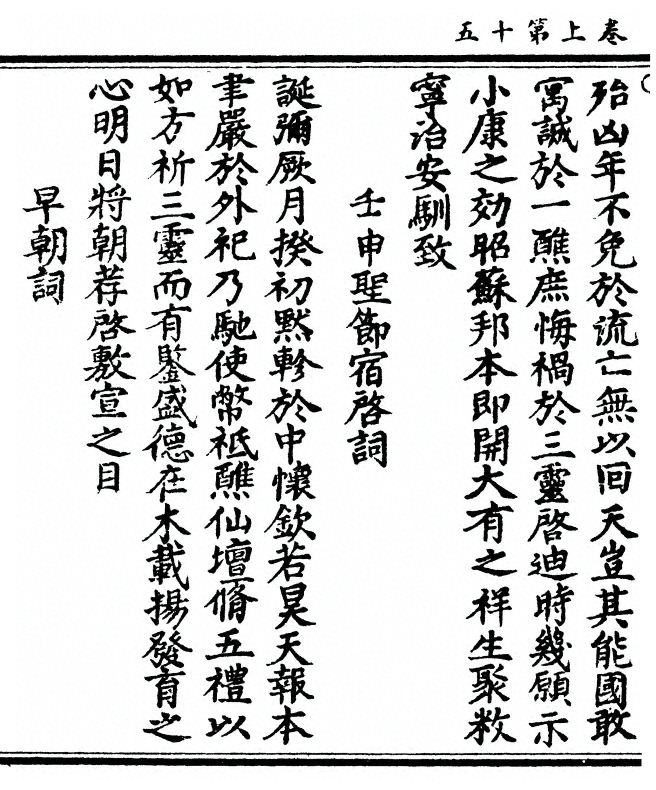 卷上第十五
殆凶年不免於流亡無以回天豈其能國敢
寓誠於一醮庶悔禍於三靈啓迪時幾願示
小康之効昭蘇邦本即開大有之祥生聚敉
寧治安馴致
壬申聖節宿啓詞
誕彌厥月揆初默軫於中懷欽若昊天報本
聿嚴於外祀乃馳使幣祗醮仙壇脩五禮以
如方祈三靈而有鑒盛德在木載揚發育之
心明日將朝荐啓敷宣之目
早朝詞